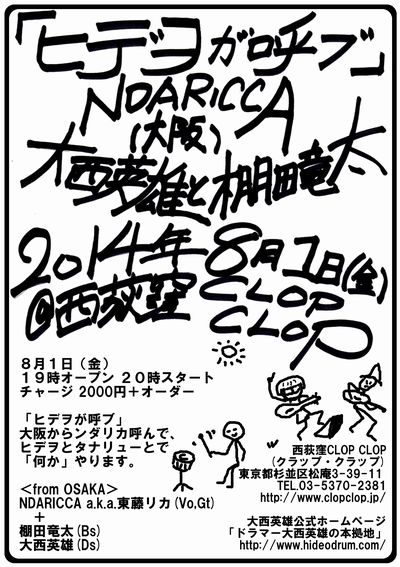 「ヒデヲが呼ブ」
NDARICCA
(大阪)
大西英雄と棚田竜太
2014年8月1日(金)
@西荻窪 CLOP
CLOP
8月1日（金）
19時オープン 20時スタート
チャージ 2000円＋オーダー
「ヒデヲが呼ブ」
大阪からンダリカ呼んで、
ヒデヲとタナリューとで
「何か」やります。
＜from OSAKA＞
NDARICCA a.k.a.東藤リカ(Vo,Gt)
＋
棚田竜太(Bs)
大西英雄(Ds)
西荻窪CLOP CLOP
(クラップ・クラップ)
東京都杉並区松庵3-39-11
TEL.03-5370-2381
http://www.clopclop.jp/
大西英雄公式ホームページ
「ドラマー大西英雄の本拠地」
http://www.hideodrum.com/